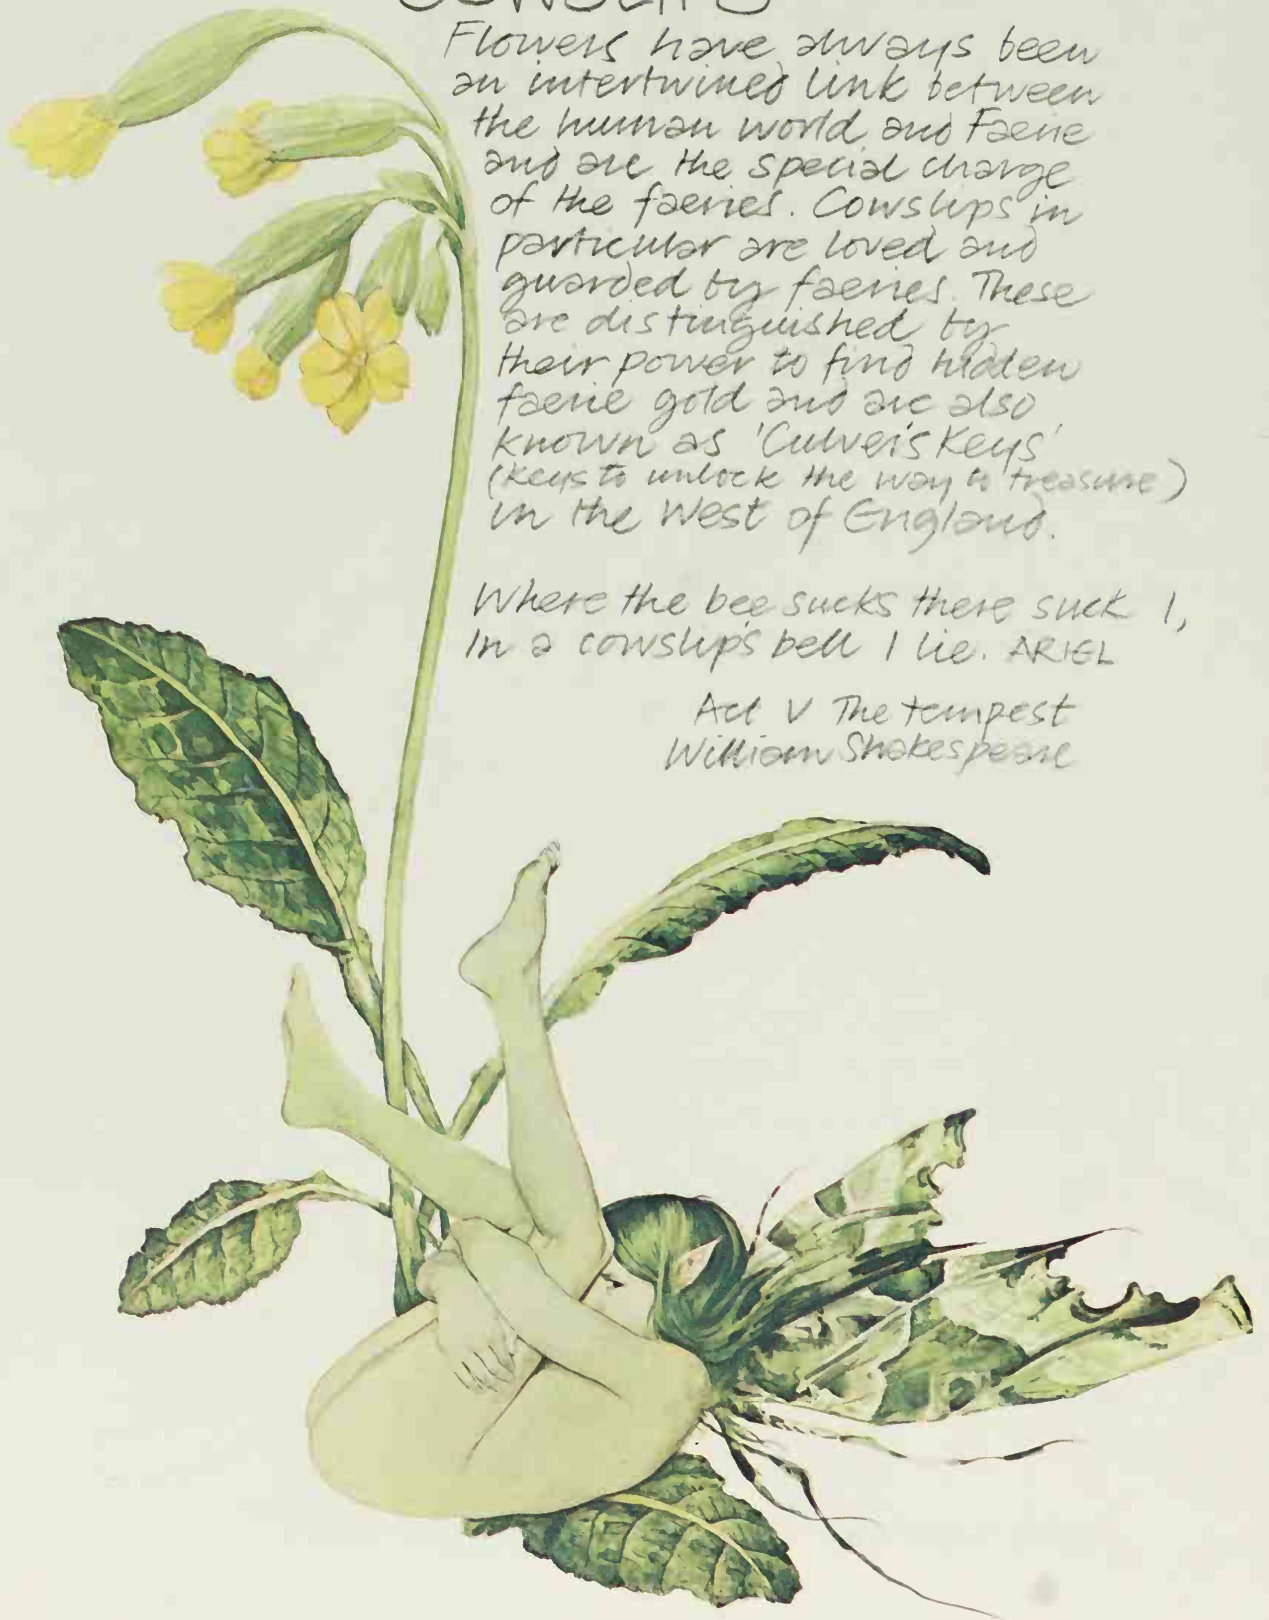 COWSLIPS
Flowers have always been
an intertwined link between
the human world and Faerie
and are the special charge
of the faeries. Cowslips in
particular are loved and
guarded by faeries. These
are distinguished by
their power to find hidden
faerie gold and are also
known as 'Culver's Keys'
(keys to unlock the way to treasure)
in the West of England.
Where the bee sucks there suck I,
In a cowslip's bell I lie. ARIEL
Act V The tempest
William Shakespeare